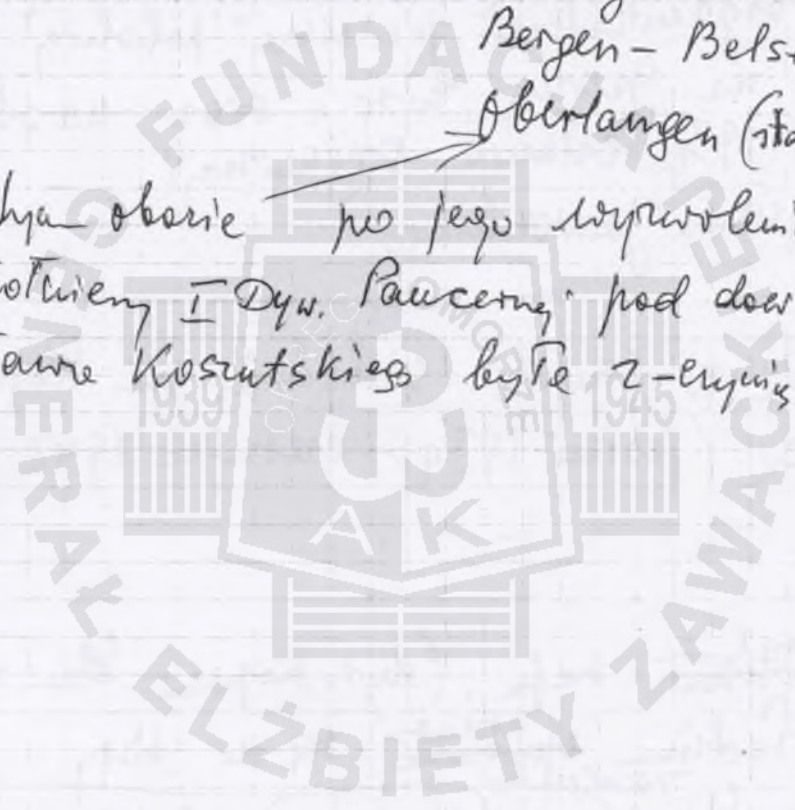 Bergen – Bels
Oberlangen (sta
obozie po jego wyzwoleni
I Dyw. Pancernej pod dow
Koszutskiego była z-czynią
FUNDACJA GENERAŁ ELŻBIETY ZAWACKIEJ
OKRĘG POMORZE
1939 1945
AK